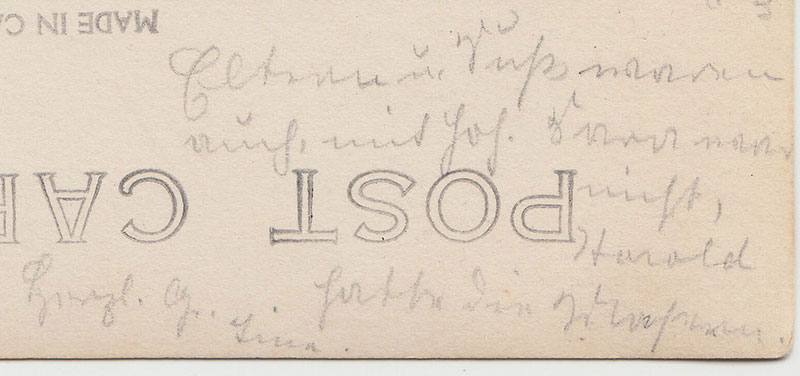 MADE IN CA
Eltern u. Suss waren
auch, mit Joh. Sara war
POST CAR
nicht,
Harold
Herzl. G. hatte die Masern.
Lina.